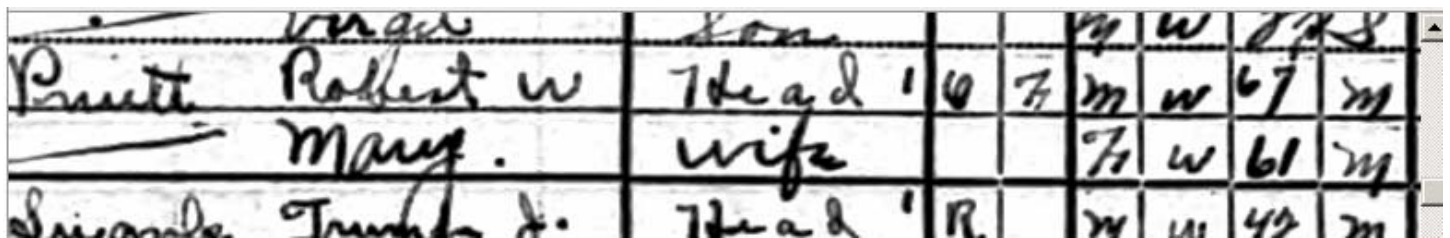 Virgil Son M W S
Pruett Robert W Head 1 O F M W 67 M
Mary. Wife F W 61 M
J. Head 1 R M W 42 M